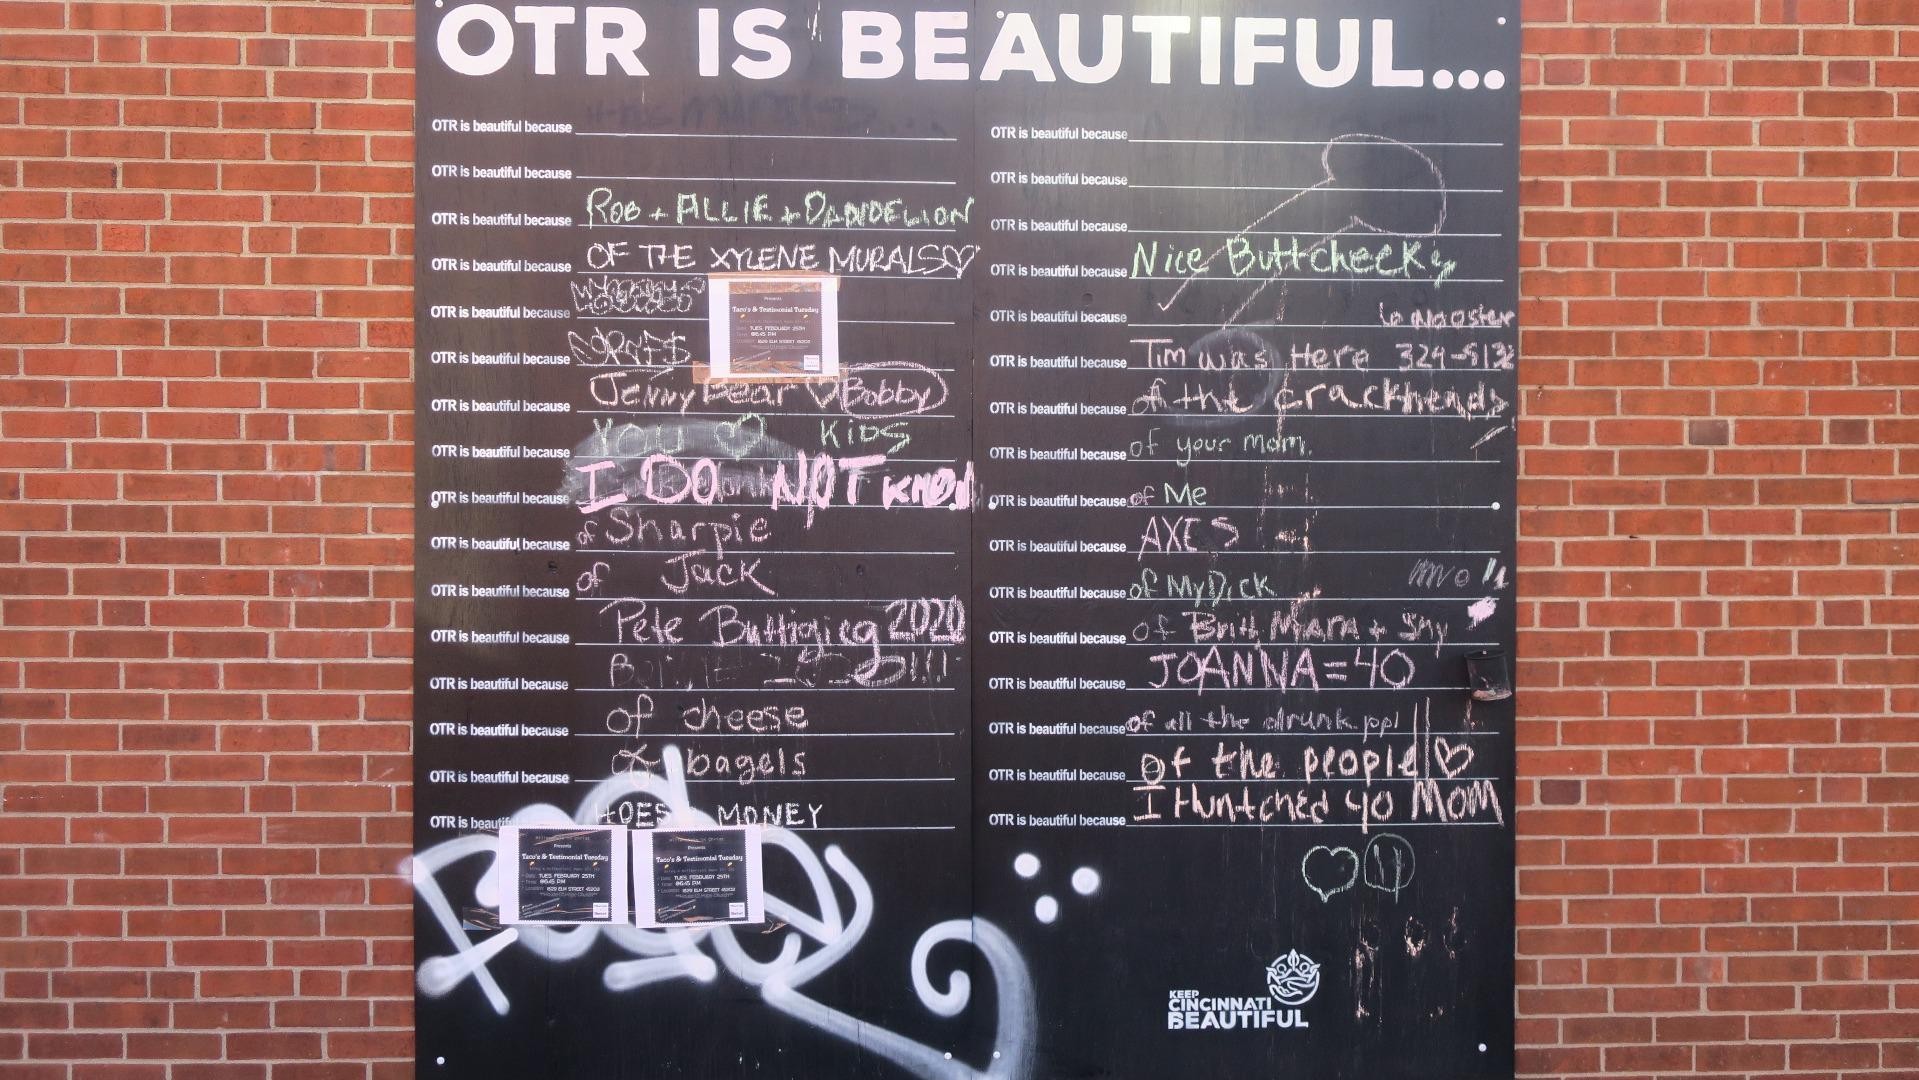 OTR IS BEAUTIFUL...
OTR is beautiful because
OTR is beautiful because
OTR is beautiful because ROB + ALLIE + DANDELION
OTR is beautiful because OF THE XYLENE MURALS♡
OTR is beautiful because
OTR is beautiful because
Presents
Taco's & Testimonial Tuesday
Date: TUES, FEBRUARY 25TH
Time: @6:45 P.M
Location: 1629 ELM STREET 45202
OTR is beautiful because Jenny Bear ♡ Bobby
OTR is beautiful because YOU ♡ KIDS
OTR is beautiful because I DO NOT KNOW
OTR is beautiful because of Sharpie
OTR is beautiful because of Jack
OTR is beautiful because Pete Buttigieg 2020
OTR is beautiful because
OTR is beautiful because of cheese
OTR is beautiful because of bagels
OTR is beautiful because HOES MONEY
Presents
Taco's & Testimonial Tuesday
Date: TUES, FEBRUARY 25TH
Time: @6:45 P.M
Location: 1629 ELM STREET 45202
Presents
Taco's & Testimonial Tuesday
Date: TUES, FEBRUARY 25TH
Time: @6:45 P.M
Location: 1629 ELM STREET 45202
OTR is beautiful because
OTR is beautiful because
OTR is beautiful because
OTR is beautiful because Nice Buttcheeks
OTR is beautiful because
OTR is beautiful because Tim was Here 324-5132
OTR is beautiful because of the crackheads
OTR is beautiful because of your mom.
OTR is beautiful because of Me
OTR is beautiful because AXES
OTR is beautiful because of My Dick
OTR is beautiful because of Britt, Mara + Shy
OTR is beautiful because JOANNA = 40
OTR is beautiful because of all the drunk ppl
OTR is beautiful because of the people ♡
OTR is beautiful because I Huntched yo MOM
KEEP
CINCINNATI
BEAUTIFUL